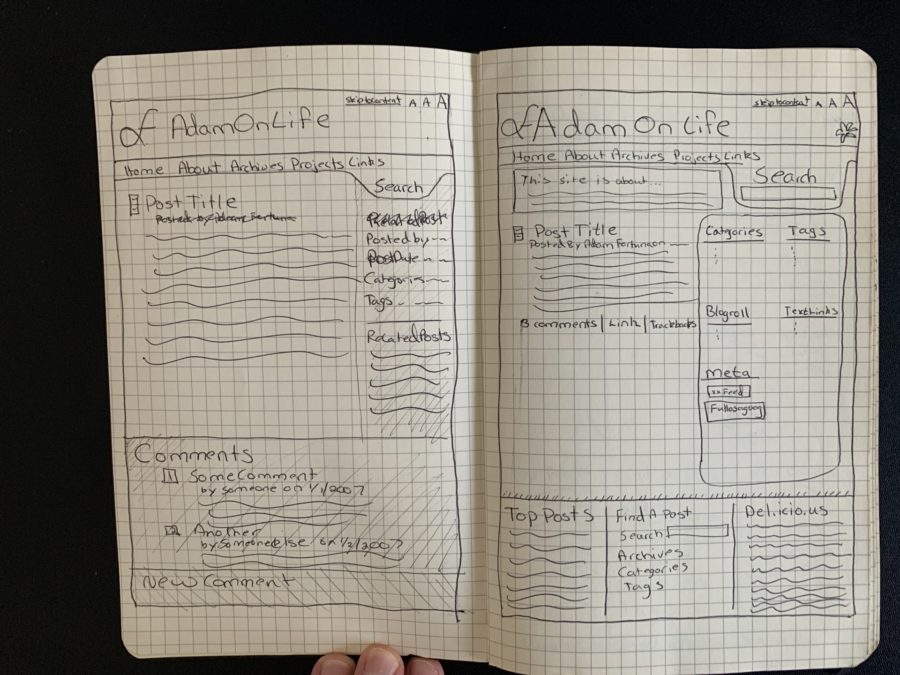 skip to content A A A
af AdamOnLife
Home About Archives Projects Links
Search
Post Title
Posted by Adam Fortuna
Related Posts
Posted by
Post Date
Categories
Tags
Related Posts
Comments
1 Some Comment
by someone on 1/1/2007
2 Another
by Someoneelse on 1/2/2007
New Comment
skip to content A A A
af Adam On Life
Home About Archives Projects Links
This site is about...
Search
Post Title
Posted By Adam Fortunaon
3 comments | Link | Trackbacks
Catgories Tags
Blogroll Textlinks
Meta
Feed
Top Posts
Find A Post
Search
Archives
Categories
Tags
Del.icio.us